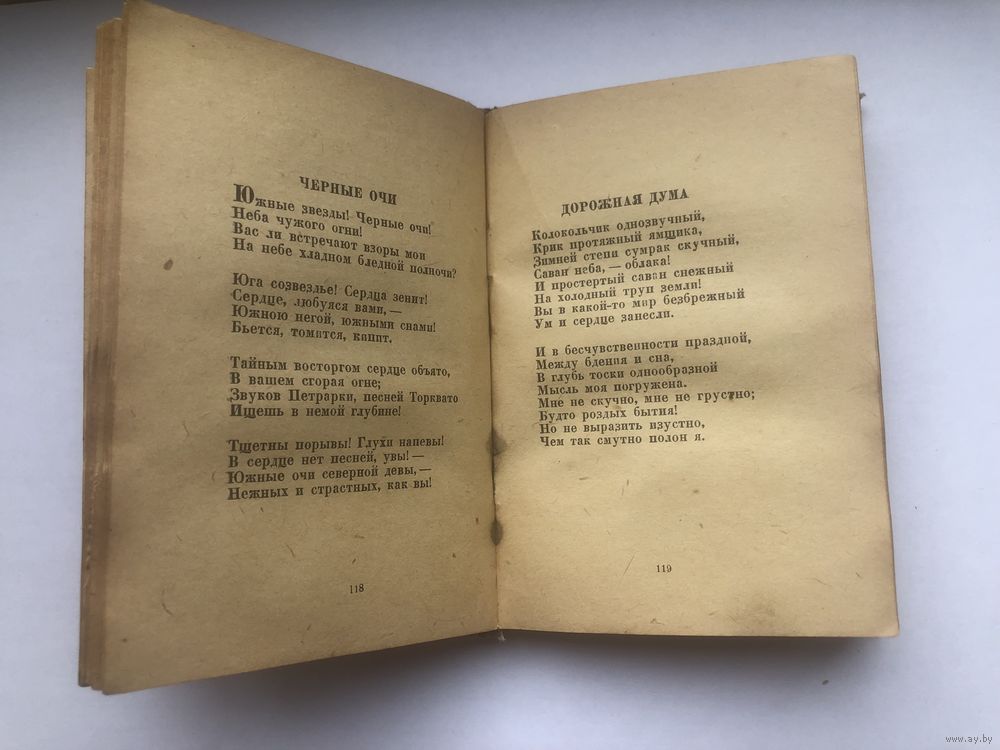 ЧЕРНЫЕ ОЧИ
Южные звезды! Черные очи!
Неба чужого огни!
Вас ли встречают взоры мои
На небе хладном бледной полночи?
Юга созвездье! Сердца зенит!
Сердце, любуяся вами, —
Южною негой, южными снами!
Бьется, томится, кипит.
Тайным восторгом сердце объято,
В вашем сгорая огне;
Звуков Петрарки, песней Торквато
Ищешь в немой глубине!
Тщетны порывы! Глухи напевы!
В сердце нет песней, увы! —
Южные очи северной девы, —
Нежных и страстных, как вы!
118
ДОРОЖНАЯ ДУМА
Колокольчик однозвучный,
Крик протяжный ямщика,
Зимней степи сумрак скучный,
Саван неба, — облака!
И простертый саван снежный
На холодный труп земли!
Вы в какой-то мир безбрежный
Ум и сердце занесли.
И в бесчувственности праздной,
Между бдения и сна,
В глубь тоски однообразной
Мысль моя погружена.
Мне не скучно, мне не грустно;
Будто роздых бытия!
Но не выразить изустно,
Чем так смутно полон я.
119
www.ay.by